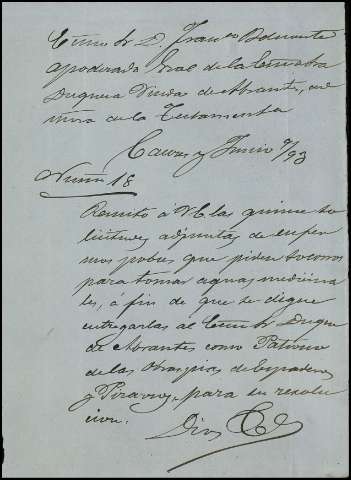 Excmo Sr D. Franco
apoderado Gral de la Excma Sra
Duquesa Viuda de Abrantes,
de la Testamenta
Junio 9/93
Núm 18
Remito á VE las quince so
licitudes adjuntas de enfer
mos pobres que piden socorros
para tomar aguas medicina
les, á fin de que se digne
entregarlas al Excmo Sr Duque
de Abrantes como Patrono
de las Obras pias de
y Pizarro, para su resolu
cion.
Dios